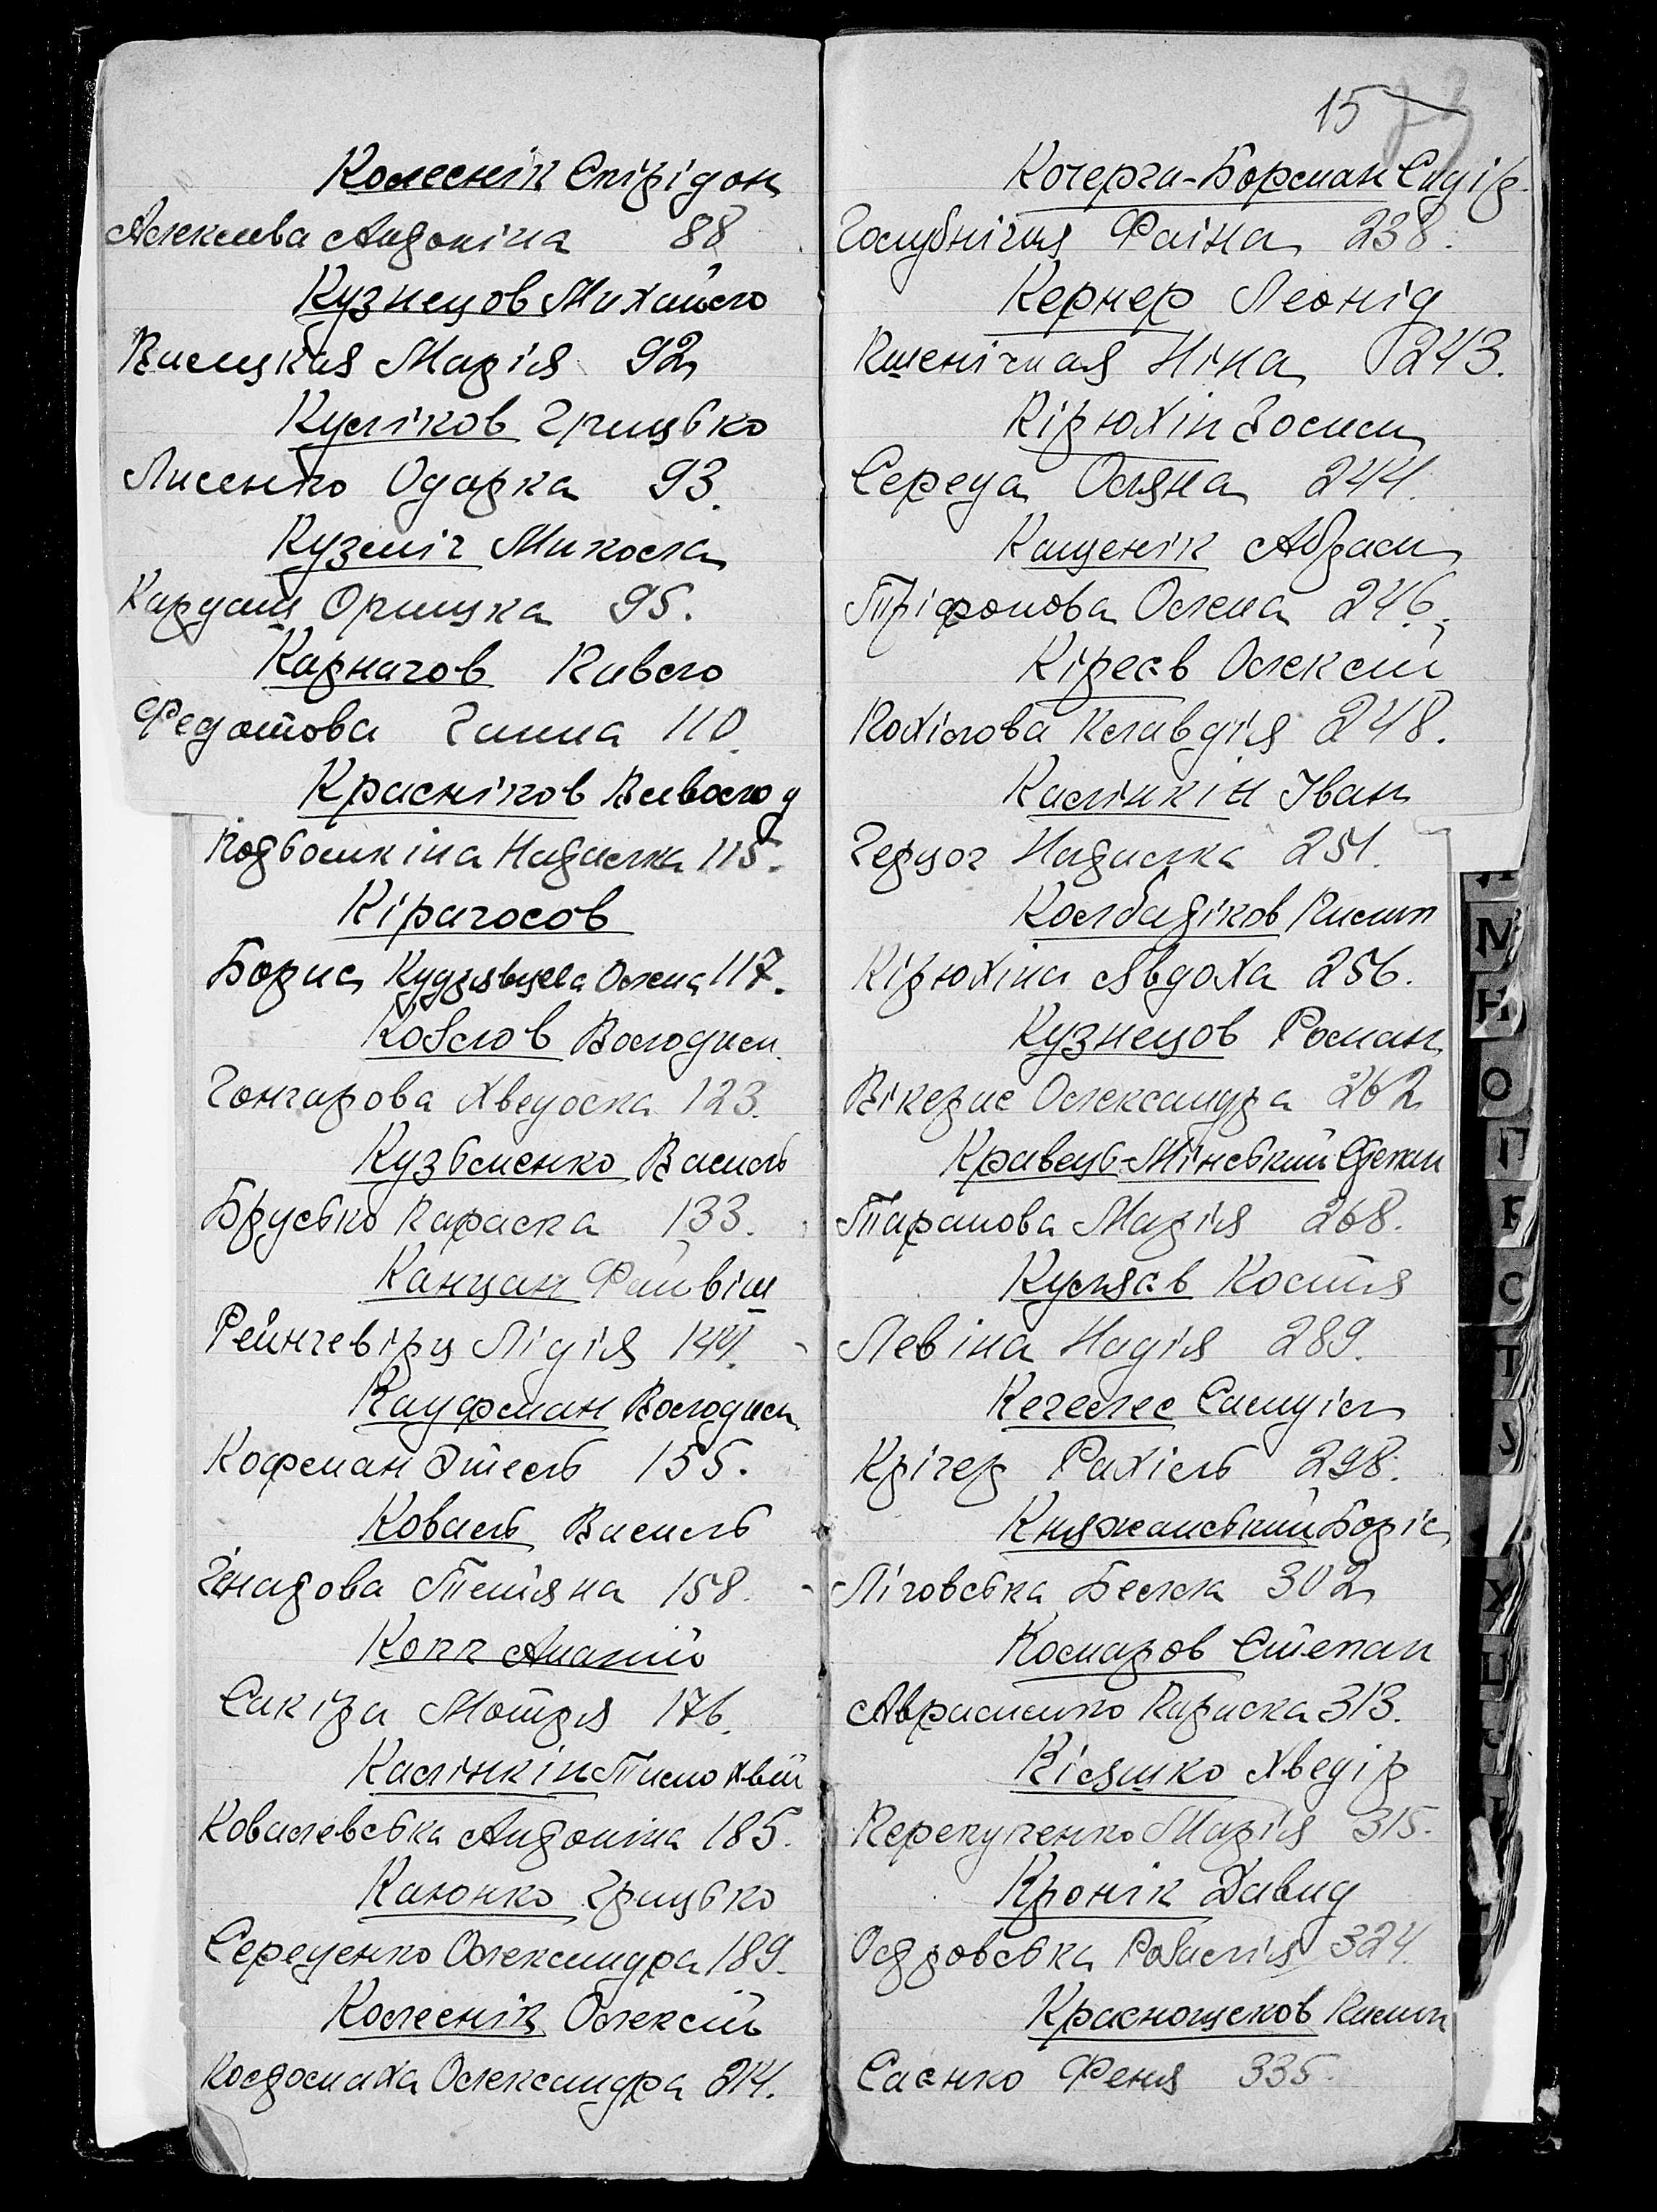 Колеснік Спірідон
Алексиева Андоніна 88
Кузнецов Михайло
Вилицкая Марія 92
Куліков Грицько
Лисенко Одарка 93.
Кузміч Микола
Кардаш Оришка 95.
Карначов Павло
Федотова Ганна 110.
Красніков Всеволод
Подвошкіна Надалка 115.
Кірагосов
Борис Кудрявцева Олена 117.
Козлов Володим.
Гончарова Хведоска 123.
Кузьменко Василь
Брусько Параска 133.
Канцан Файвіш
Рейнгевірц Лідія 144.
Кауфман Володим
Кофман Этель 155.
Коваль Василь
Генадова Тетяна 158.
Копп Ананій
Сакіра Мотря 176.
Калінкін Тимохвій
Ковалевська Андоніна 185.
Каюнко Грицько
Середенко Олександра 189.
Колеснік Олексій
Костомаха Олександра 214.
15
Кочерга-Борсман Сидір
Голубнічая Фаіна 238.
Кернер Леонід
Пшенічная Ніна 243.
Кірюхін Йосип
Середа Оляна 244.
Кащенік Абрам
Тріфонова Олена 246.
Кіреєв Олексій
Похілова Клавдія 248.
Калінкін Іван
Герцог Надалка 251.
Колбаріков Пилип
Кірюхіна Явдоха 256.
Кузнецов Роман
Вікерис Олександра 262
Кравець-Мінський Степан
Таранова Марія 268.
Куляєв Костя
Левіна Надія 289.
Кегелес Самуіл
Крігер Рахіль 298.
Княжанський Боріс
Ліговська Белла 302
Комаров Степан
Авраменко Параска 313.
Кіяшко Хведір
Перекученко Марія 315.
Кронік Давид
Островська Розалія 324.
Краснощеков Пилип
Саєнко Феня 335.